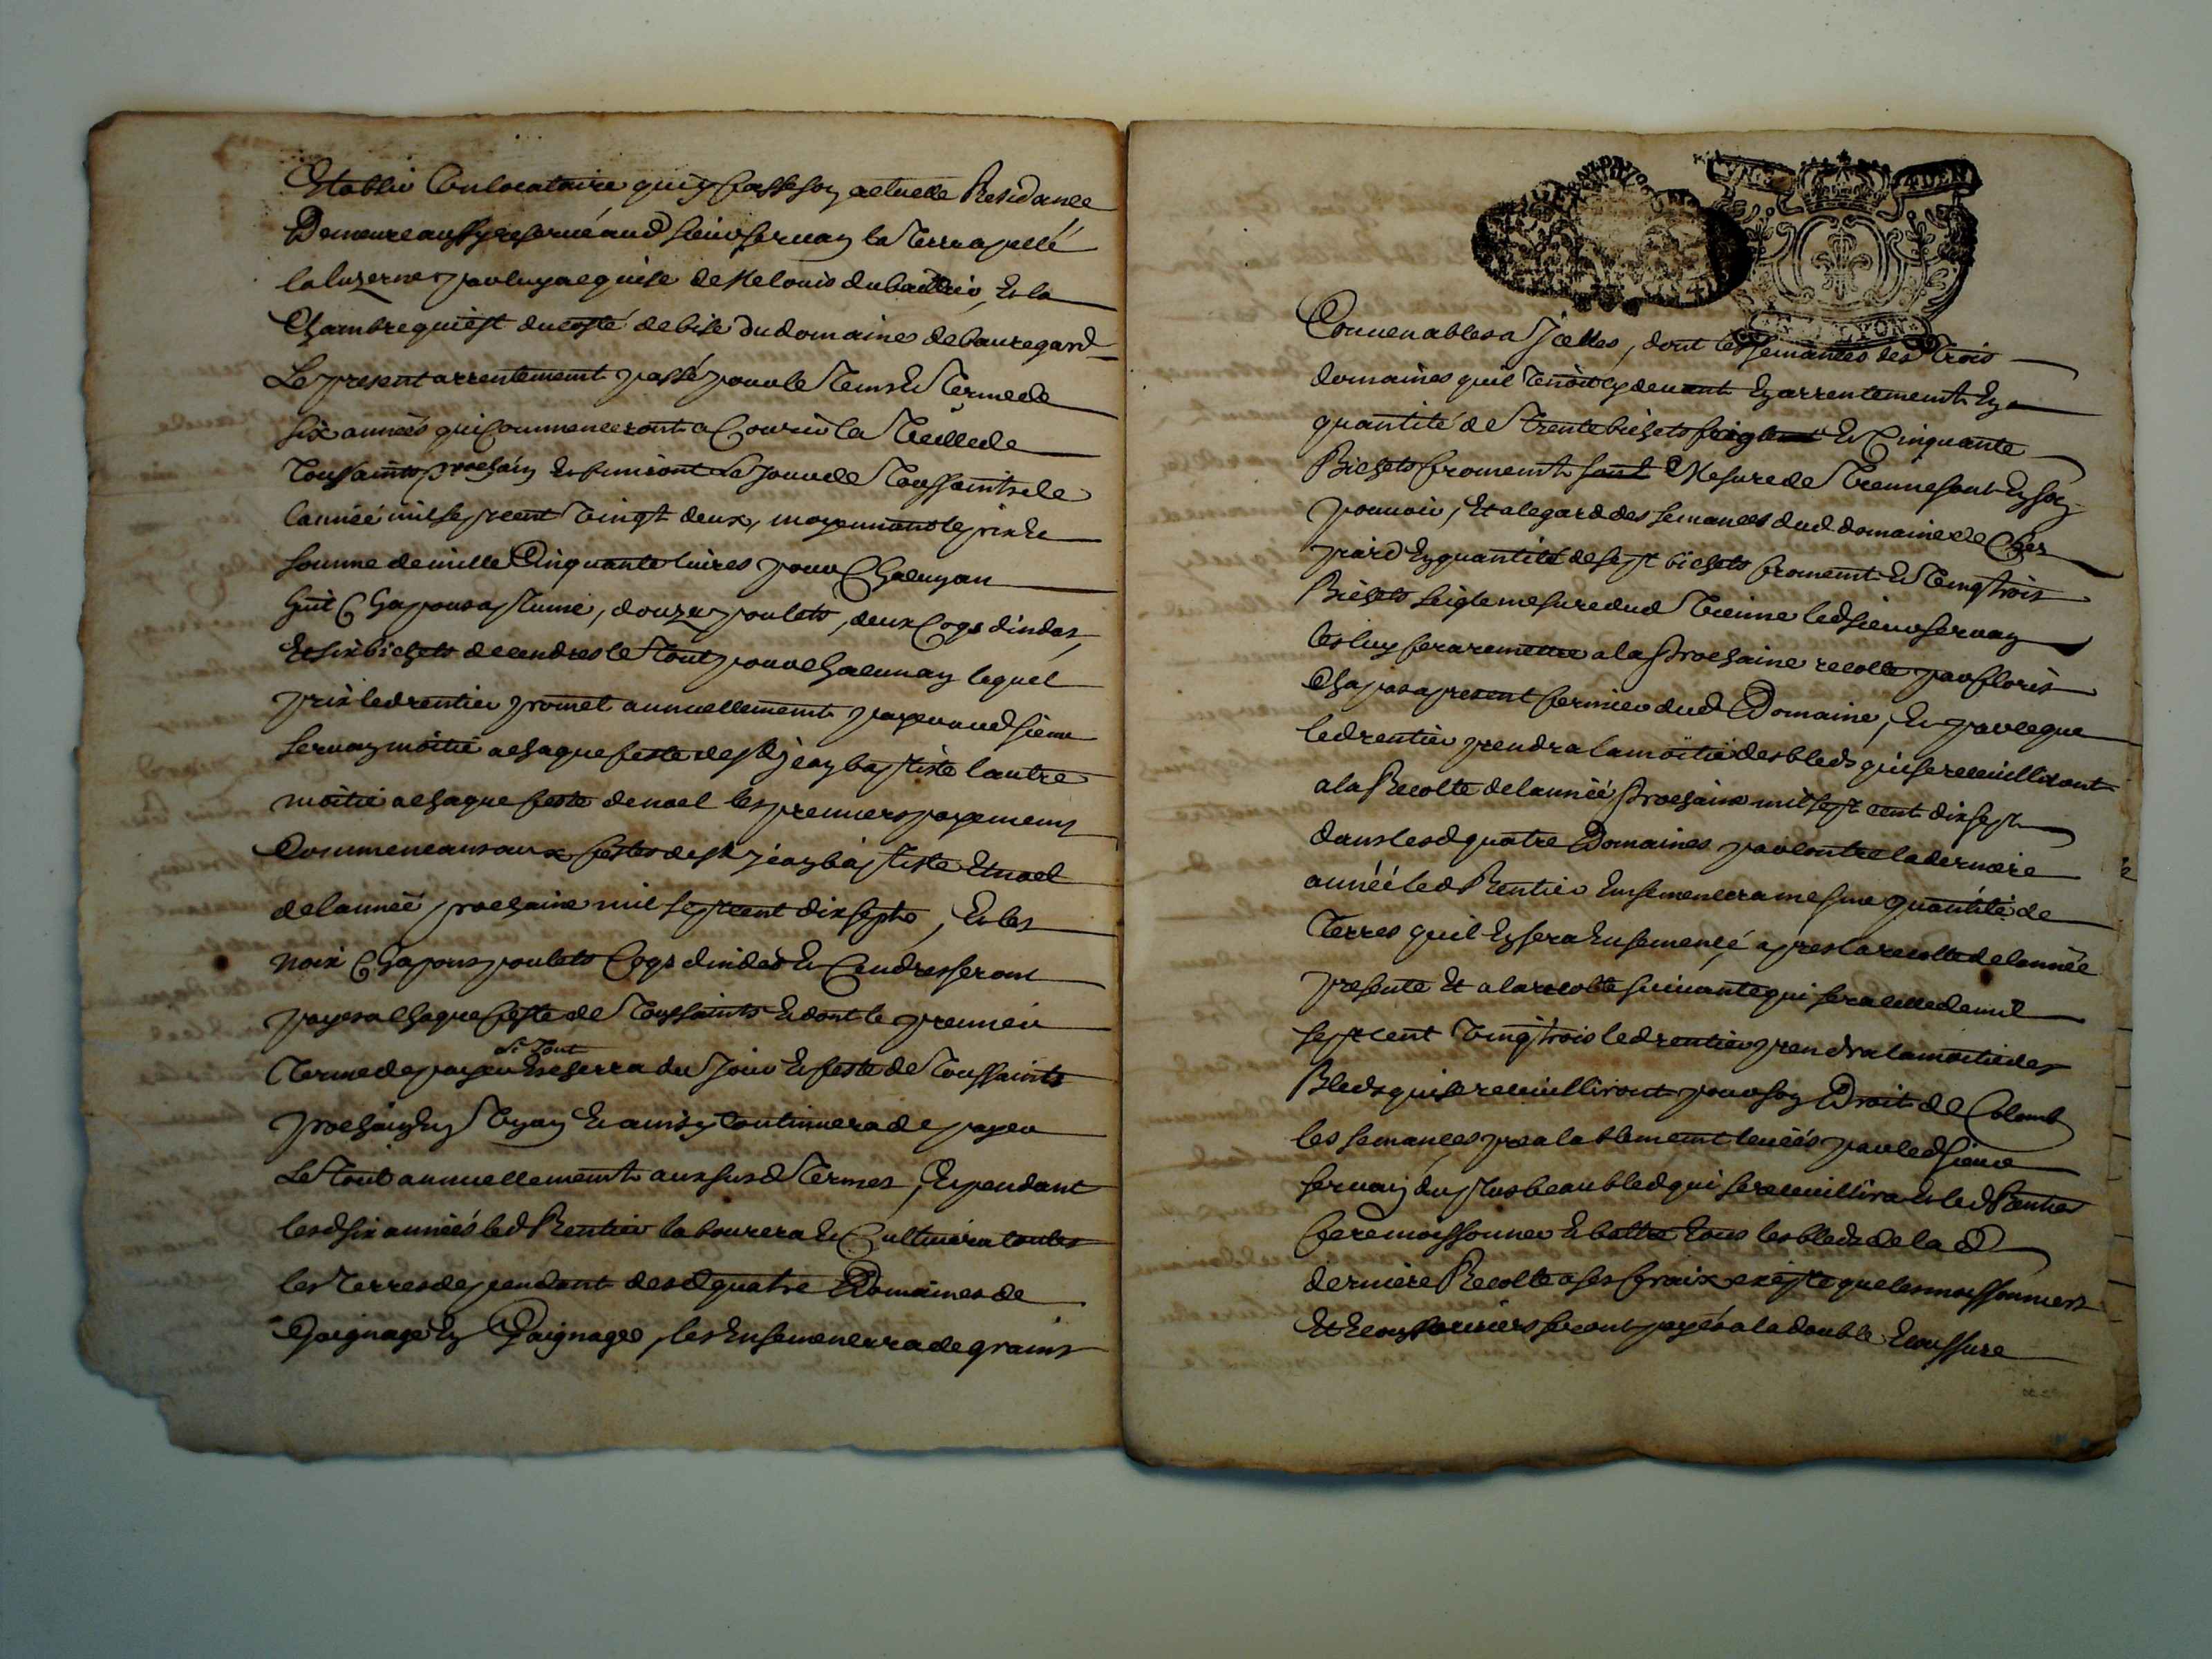 Establir Un locataire qui y fasse son actuelle Residance
Demeure aussy reserué aud sieur seruan la Terre apellé
la luzerne par luy acquise de Me louis dubaudrio, Et la
Chambre qui est du costé de bise du domaine de beauregard
Le present arrentement passé pour le Tems Et Terme de
six années qui Commenceront a Courir la Veille de
Toussaints prochain Et finiront Le Jour de Toussaints de
lannée mil sept cent Vingt deux, moyennant le prix Et
somme de mille Cinquante liures pour Chacun an
huit Chapons a plume, douze poulets, deux Cogs dindes,
Et six bichets de cendres le Tout pour chacun an lequel
prix led rentier promet annuellement payer aud sieur
seruan moitié a chaque feste de st jean baptiste lautre
moitié a chaque feste de noel les premiers payements
Commencants aux festes de st jean baptiste Et noel
de lannée prochaine mil sept cent dix septs, Et les
noix Chapons poulets Cogs dindes Et Cendres seront
payes a Chaque feste de Toussaints Et dont le premier
Terme de payer Escherra du Jour Et feste de Toussaints
prochain En Vn an Et ainsy Continuera de payer
Le Tout annuellement aux susd Termes, Et pendant
lesd six années led Rentier labourera Et Cultiuera toutes
les Terres dependant desd quatre Domaines de
Gaignage En Gaignage, les Ensemencera de grains
Conuenables a Jcelles, dont les semances des Trois
domaines quil Tenoit cy deuant En arrentement En
quantité de Trente bichets seigle Et Cinquante
Bichets froment Mesure de Vienne sont En son
pouuoir, Et a legard des semances dud domaine de
En quantité de sept bichets froment Et Vingt trois
Bichets seigle mesure dud Vienne led sieur seruan
les luy fera remettre a la prochaine recolte par floris
Chapos a present fermier dud Domaine, Et parceque
led rentier prendra la moitié des bleds qui se receuilliront
a la Recolte de lannéé prochaine mil sept cent dix sept
dans lesd quatre Domaines par contre la derniere
annéé led Rentier Ensemencera mesme quantité de
Terres quil En sera Ensemencé apres la recolte de lannée
presente Et a la recolte suiuante qui sera celle de mil
sept cent Vingt trois led rentier prendra la moitié des
Bleds qui se receuilliront pour son Droit de Colomb
les semances prealablement leuéés par led sieur
seruan du plus beau bled qui se receuillira Et led Rentier
fera moissonner Et battre Tous les bleds de la d
derniere Recolte a ses fraix exepte que les moissonniers
Et seront payés a la double Ecoussure